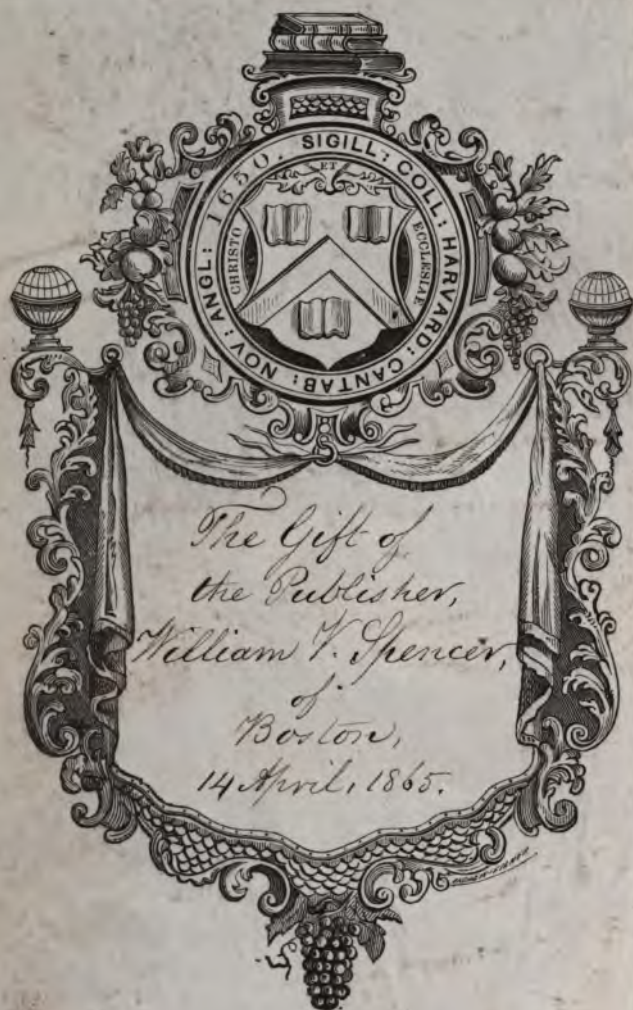 SIGILL: COLL: HARVARD: CANTAB: NOV: ANGL: 1650.
CHRISTO ET ECCLESIAE
The Gift of
the Publisher,
William V. Spencer,
of
Boston,
14 April, 1865.